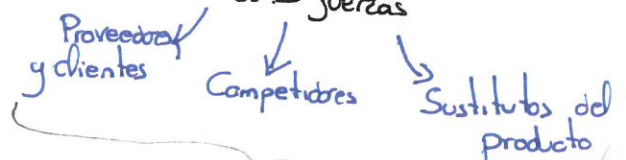 fuerzas
Proveedores
y clientes
Competidores
Sustitutos del
producto